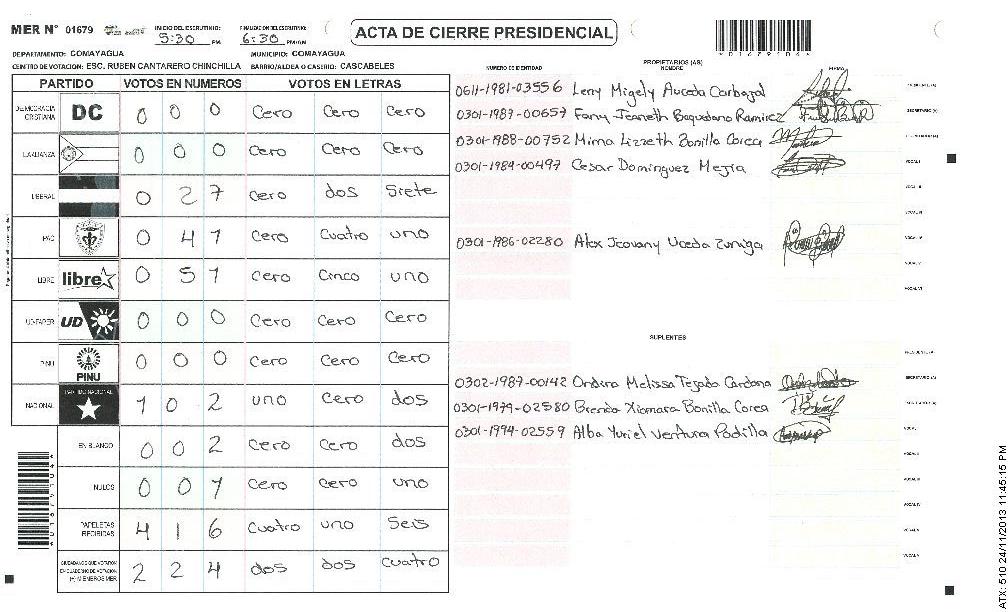 MER N° 01679 INICIO DEL ESCRUTINIO: 5:30 PM FINALIZACION DEL ESCRUTINIO: 6:30 PM/AM ACTA DE CIERRE PRESIDENCIAL
DEPARTAMENTO: COMAYAGUA MUNICIPIO: COMAYAGUA
CENTRO DE VOTACION: ESC. RUBEN CANTARERO CHINCHILLA BARRIO/ALDEA O CASERIO: CASCABELES
PARTIDO VOTOS EN NUMEROS VOTOS EN LETRAS
DEMOCRACIA CRISTIANA DC 0 0 0 Cero Cero Cero
LA ALIANZA 0 0 0 Cero Cero Cero
LIBERAL 0 2 7 Cero dos Siete
PAC 0 4 1 Cero Cuatro uno
LIBRE libre 0 5 1 Cero Cinco uno
UD-FAPER UD 0 0 0 Cero Cero Cero
PINU PINU 0 0 0 Cero Cero Cero
NACIONAL PARTIDO NACIONAL 1 0 2 uno Cero dos
EN BLANCO 0 0 2 Cero Cero dos
NULOS 0 0 1 Cero Cero uno
PAPELETAS RECIBIDAS 4 1 6 Cuatro uno Seis
CIUDADANOS QUE VOTARON EN CUADERNO DE VOTACION (+) MIEMBROS MER 2 2 4 dos dos Cuatro
NUMERO DE IDENTIDAD PROPIETARIOS (AS) NOMBRE FIRMA
0611-1981-03556 Leny Migely Auceda Carbajal PRESIDENTE (A)
0301-1987-00657 Fany Jeaneth Baquedano Ramirez SECRETARIO (A)
0301-1988-00752 Mirna Lizzeth Bonilla Corea
0301-1984-00497 Cesar Dominguez Mejia VOCAL I
VOCAL II
VOCAL III
0301-1986-02280 Alex Jeovany Uceda Zuniga VOCAL IV
VOCAL V
VOCAL VI
SUPLENTES
PRESIDENTE (A)
0302-1987-00142 Ondina Melissa Tejada Cardona SECRETARIO (A)
0301-1979-02580 Brenda Xiomara Bonilla Corea
0301-1994-02559 Alba Yuriel Ventura Padilla VOCAL I
VOCAL II
VOCAL III
VOCAL IV
VOCAL V
VOCAL VI
ATX: 510 24/11/2013 11:45:15 PM